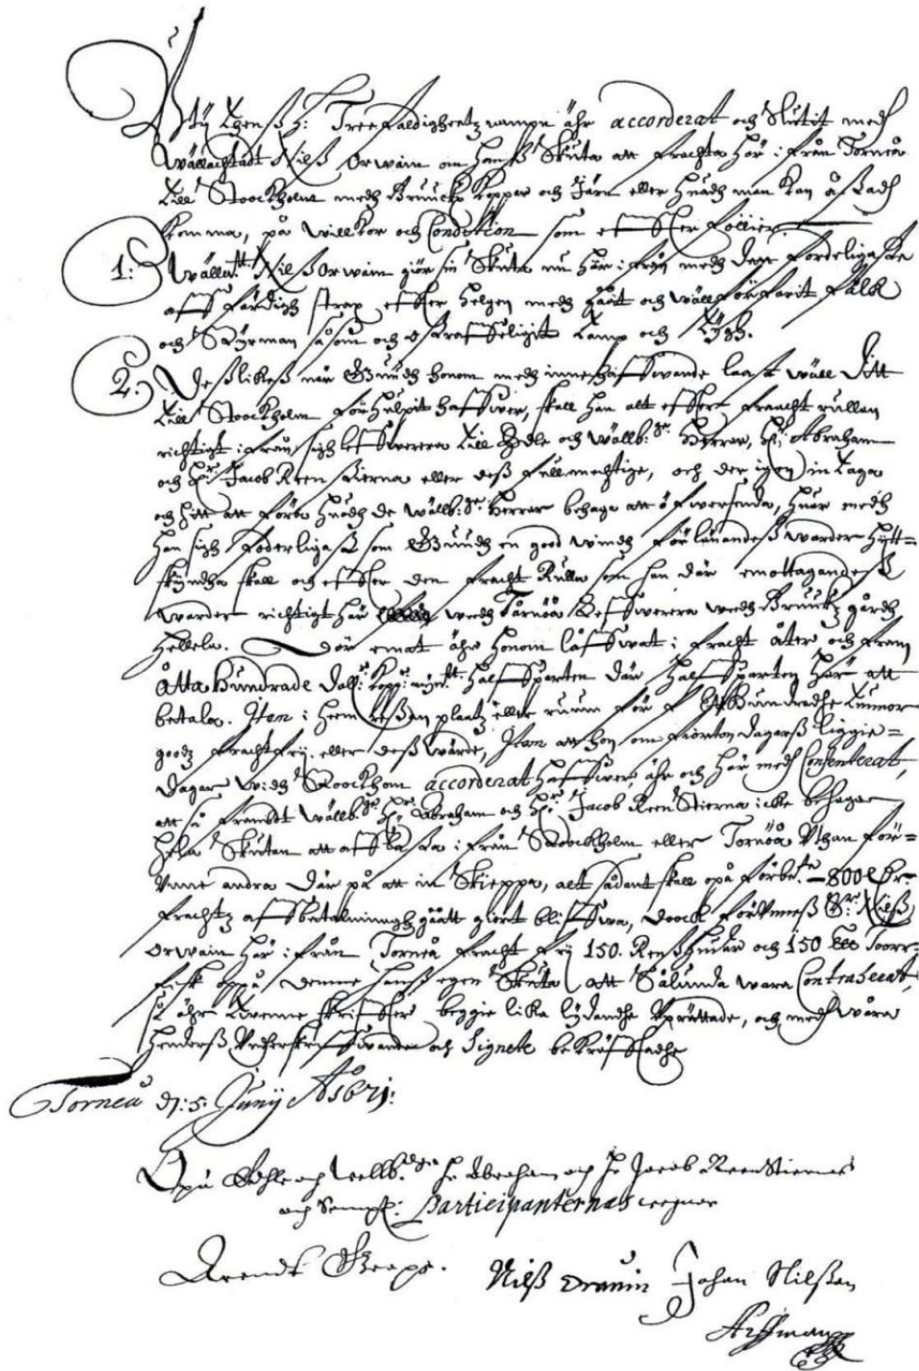 Uthj thenß h: Treefaldigheetz nampn ähr accorderat och Slutit medh
Wällachtadt Nielß Orwain om hanß Skuta att frachta här ifrån Torneå
till Stoockholm medh Bruucks Kopper och Järn eller huadh man kan åstadh
komma, på willkor och Condition som effter föllier.
1: Wälla:tt Nielß Orwain giör sin Skuta nu här ifrån medh dett fordeligaste
aff färdigh strax effter helgen medh gått och wällförfarit fålck
och Styrman såsom och ostraffeligit tamp och tygh.
2. Deßlikeß när Gudh honom medh innehaffwande laast wäll ditt
till Stoockholm förhulpit haffwer, skall han alt effter fracht rullan
richtigt ifrån sigh leffwerera till Edle och wällb:ne Herrar, H:r Abraham
och H:r Jacob Reenstierna eller deß fullmechtige, och der igen intaga
och hitt att föra huadh de wällb:ne Herrar behaga att öfwersenda, huar medh
han sigh foderligast som Gudh en good windh förlänandeß warder hytt=
skyndha skall och effter den fracht Rulla som han där emottagandeß
warder richtigt här wedh Tårnöå leffwerera wedh Bruuckz gårdh
Hellela. Där emot ähr honom låffwat i fracht åter och fram
Åtta Hundrade dall:r kopp:r mynt halfparten där halfparten här att
betala. Item i heem reßan platz eller ruum för Ett Hundradhe tunnor
goodz frachtfry eller deß wärde, Item att hon om fiorton dagarß liggie=
dagar widh Stoockhom accorderat haffwer, ähr och här medh Consenterat,
att så frambt wällb:ne H:r Abraham och H:r Jacob Reenstierna icke behagar
hela Skutan att afflasta ifrån Stoockholm eller Torneå Uthan för=
unne andra där på att in Skieppa, alt sådant skall opå förbe:te 800 D:r
frachtz affbetalningh gått giort bliffwa, doock förunneß S:r Nielß
Orwain här ifrån Torneå fracht fry 150. Reenßhudar och 150 Toorr=
fisk oppå denne hanß egen Skuta, att Sålunda wara Contraherat,
så ähr twenne skriffter beggie lika lydandhe uprättade, och medh wåra
henderß Underskriffwande och Signete bekräfftadhe
Torneå d: 5. Junij A:o 1671:
Opå Edhle och wellb:dne H:r Abraham och H:r Jacob Reenstiernas
och Sampt: Participanternas wegnar
Arendt Grape. Nilß Orauin Johan Nilßan